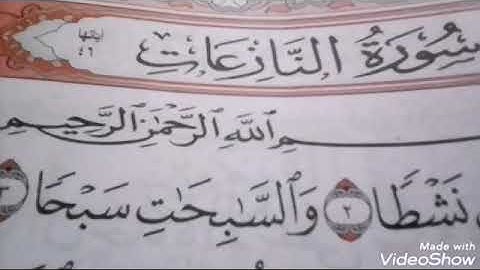 سُورَةُ النَّازِعَاتِ
اياتها
٤٦
ـسمِ ٱللَّهِ ٱلرَّحْمَٰنِ ٱلرَّحِيمِ
نَشْطًا ٢ وَٱلسَّٰبِحَٰتِ سَبْحًا ٣
Made with
VideoShow